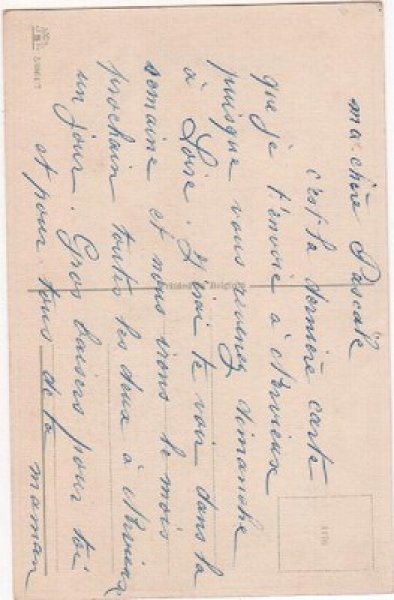 ma chère Pascale
c'est la dernière carte
que je t'envoie à Nervieux
puisque vous revenez dimanche
à Loire. J'irai te voir dans la
semaine et nous irons le mois
prochain toutes les deux à Nervieux
un jour. Gros baisers pour toi
et pour tous de ta maman